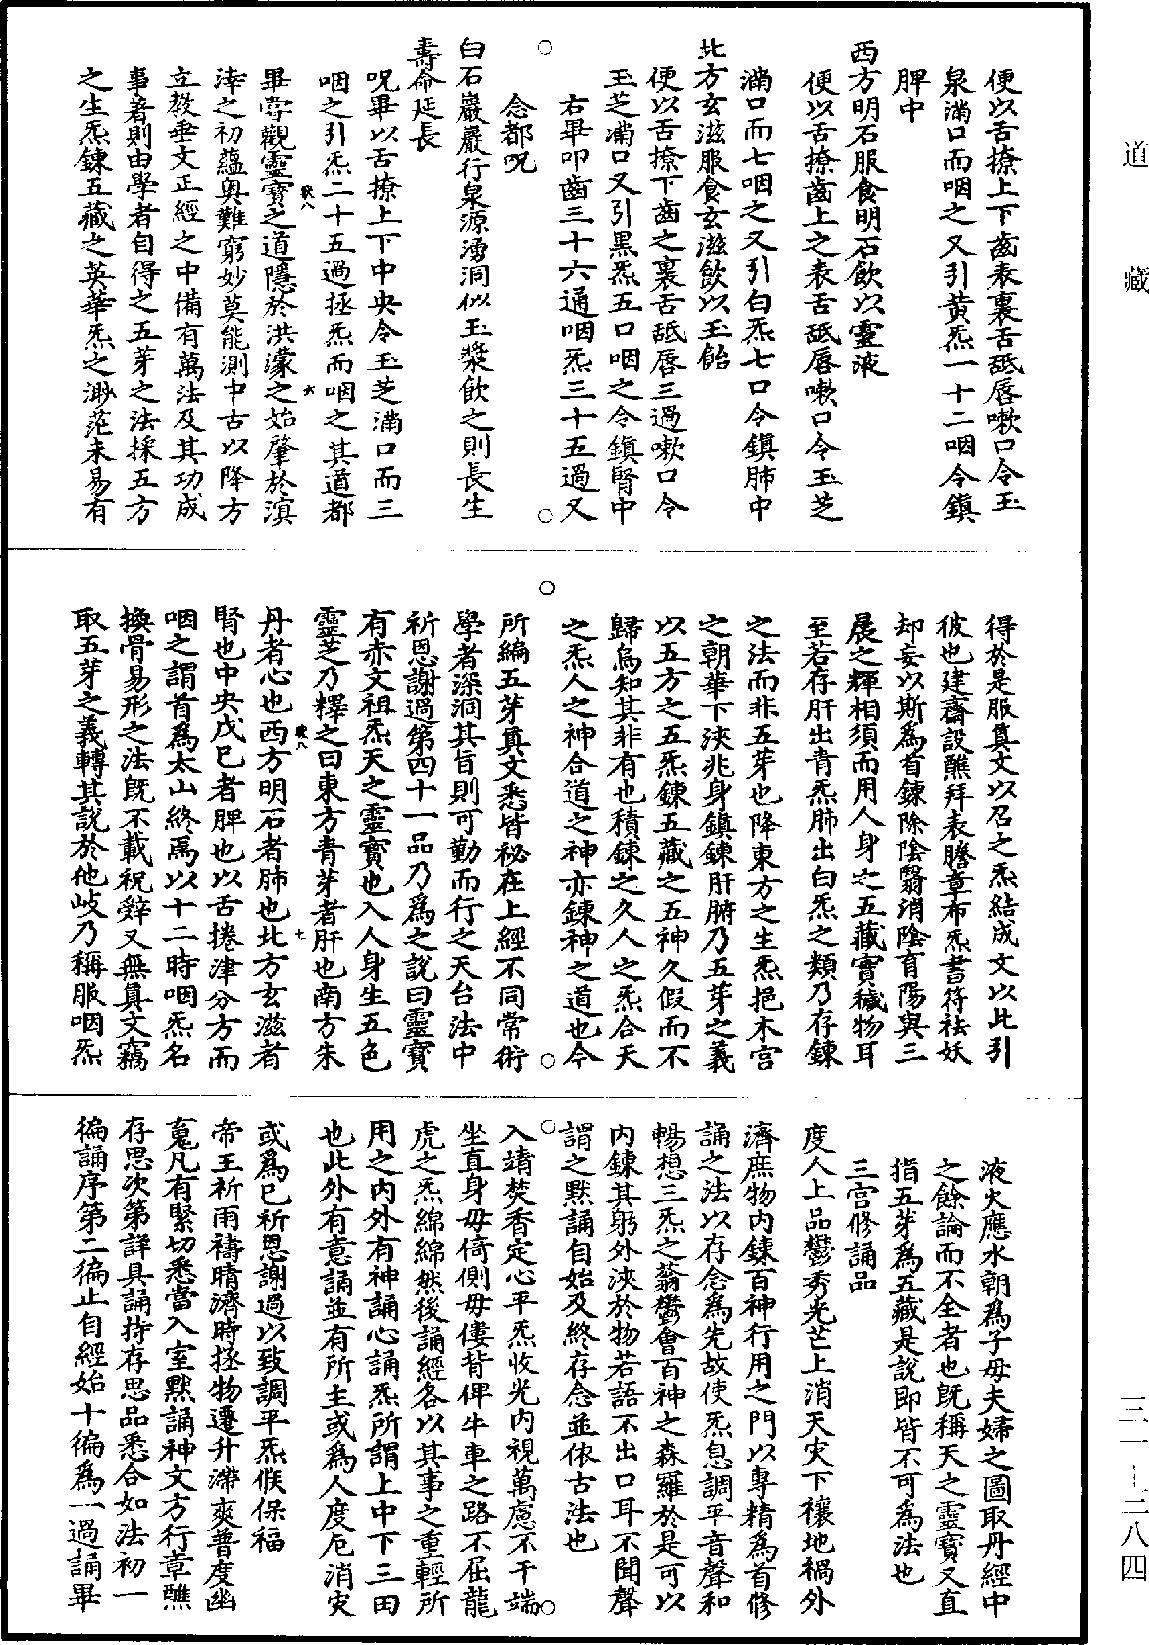 便以舌撩上下齒表裏舌舐唇嗽口令玉
泉滿口而咽之又引黃炁一十二咽令鎮
脾中
西方明石服食明石飲以靈液
便以舌撩齒上之表舌舐唇嗽口令玉芝
滿口而七咽之又引白炁七口令鎮肺中
北方玄滋服食玄滋飲以玉飴
便以舌撩下齒之裏舌舐唇三過嗽口令
玉芝滿口又引黑炁五口咽之令鎮腎中
右畢叩齒三十六通咽炁三十五過又
念都呪
白石巖巖行泉源湧洞似玉漿飲之則長生
壽命延長
呪畢以舌撩上下中央令玉芝滿口而三
咽之引炁二十五過拯炁而咽之其道都
畢嘗觀靈寶之道隱於洪濛之始肇於溟
涬之初蘊奥難窮妙莫能測中古以降方
立教垂文正經之中備有萬法及其功成
事著則由學者自得之五芽之法採五方
之生炁鍊五藏之英華炁之渺茫未易有
得於是服真文以召之炁結成文以此引
彼也建齋設醮拜表謄章布炁書符祛妖
却妄以斯為首鍊除陰翳消陰育陽與三
晨之輝相須而用人身之五藏實穢物耳
至若存肝出青炁肺出白炁之類乃存鍊
之法而非五芽也降東方之生炁挹木宮
之朝華下浹兆身鎮鍊肝腑乃五芽之義
以五方之五炁鍊五藏之五神久假而不
歸烏知其非有也積鍊之久人之炁合天
之炁人之神合道之神亦鍊神之道也今
所編五芽真文悉皆秘在上經不同常術
學者深洞其旨則可勤而行之天台法中
祈恩謝過第四十一品乃為之說曰靈寶
有赤文祖炁天之靈寶也入人身生五色
靈芝乃釋之曰東方青芽者肝也南方朱
丹者心也西方明石者肺也北方玄滋者
腎也中央戊巳者脾也以舌捲津分方而
咽之謂首為太山終為以十二時咽炁名
換骨易形之法旣不載祝辤又無真文竊
取五芽之義轉其說於他岐乃稱服咽炁
液火應水朝為子母夫婦之圖取丹經中
之餘論而不全者也旣稱天之靈寶又直
指五芽為五藏是說即皆不可為法也
三宮修誦品
度人上品鬱秀光芒上消天灾下禳地禍外
濟庶物内鍊百神行用之門以專精為首修
誦之法以存念為先故使炁息調平音聲和
暢想三炁之蓊鬱會百神之森羅於是可以
内鍊其躬外浹於物若語不出口耳不聞聲
謂之默誦自始及終存念並依古法也
入靖焚香定心平炁收光内視萬慮不干端
坐直身毋倚側毋僂背俾牛車之路不屈龍
虎之炁綿綿然後誦經各以其事之重輕所
用之内外有神誦心誦炁所謂上中下三田
也此外有意誦並有所主或為人度厄消灾
或為巳祈恩謝過以致調平炁候保福
帝王祈雨禱晴濟時拯物遷升滯爽普度幽
䰟凡有緊切悉當入室默誦神文方行章醮
存思次第詳具誦持存思品悉合如法初一
徧誦序第二徧止自經始十徧為一過誦畢
道
藏
三一-二八四